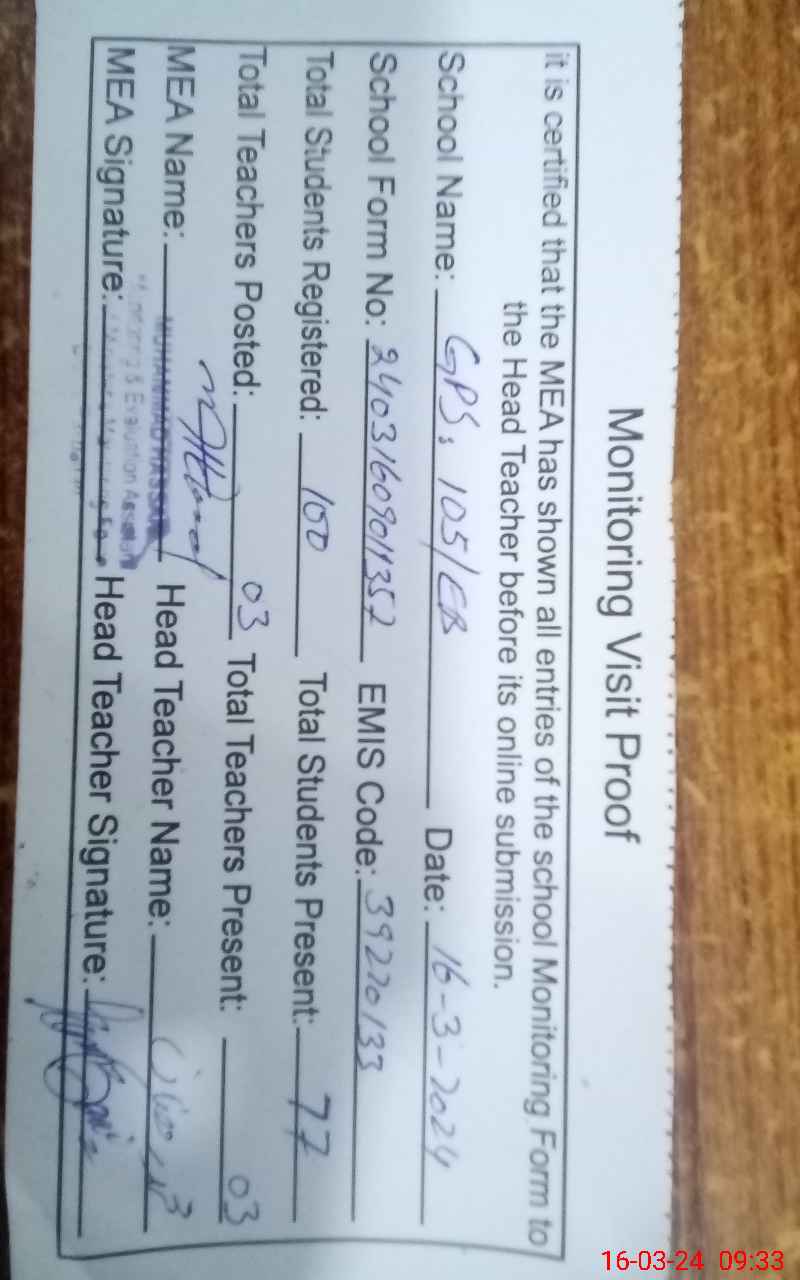 Monitoring Visit Proof
it is certified that the MEA has shown all entries of the school Monitoring Form to
the Head Teacher before its online submission.
School Name: GPS, 105/EB Date: 16-3-2024
School Form No: EMIS Code: 39220133
Total Students Registered: 100 Total Students Present: 77
Total Teachers Posted: 03 Total Teachers Present: 03
MEA Name: MUHAMMAD HASSAN Head Teacher Name:
Monitoring & Evaluation Assistant
MEA Signature: Head Teacher Signature:
16-03-24 09:33